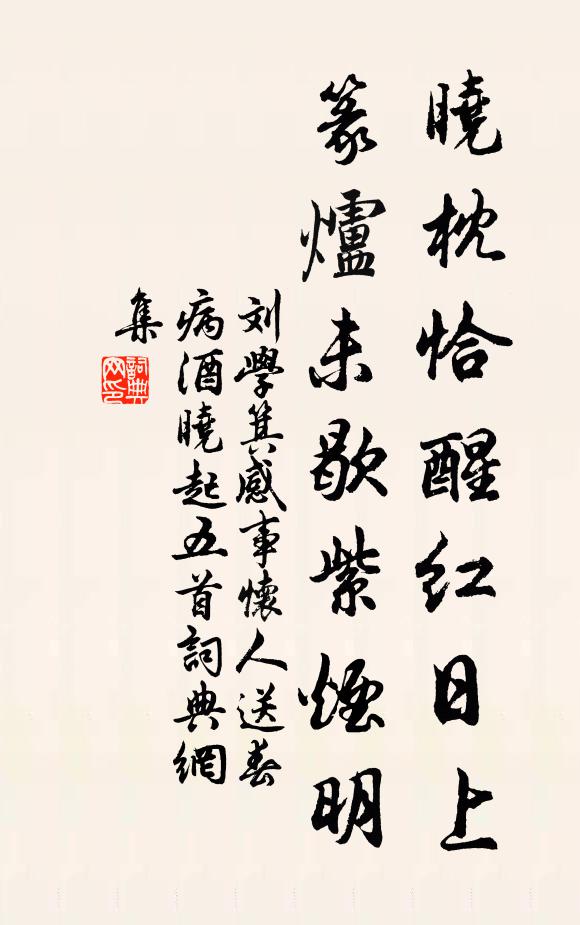 曉枕恰醒红日上
篆爐未歇紫煙明
刘學箕感事懷人送春
病酒曉起五首詞典網
集
詞典
网印